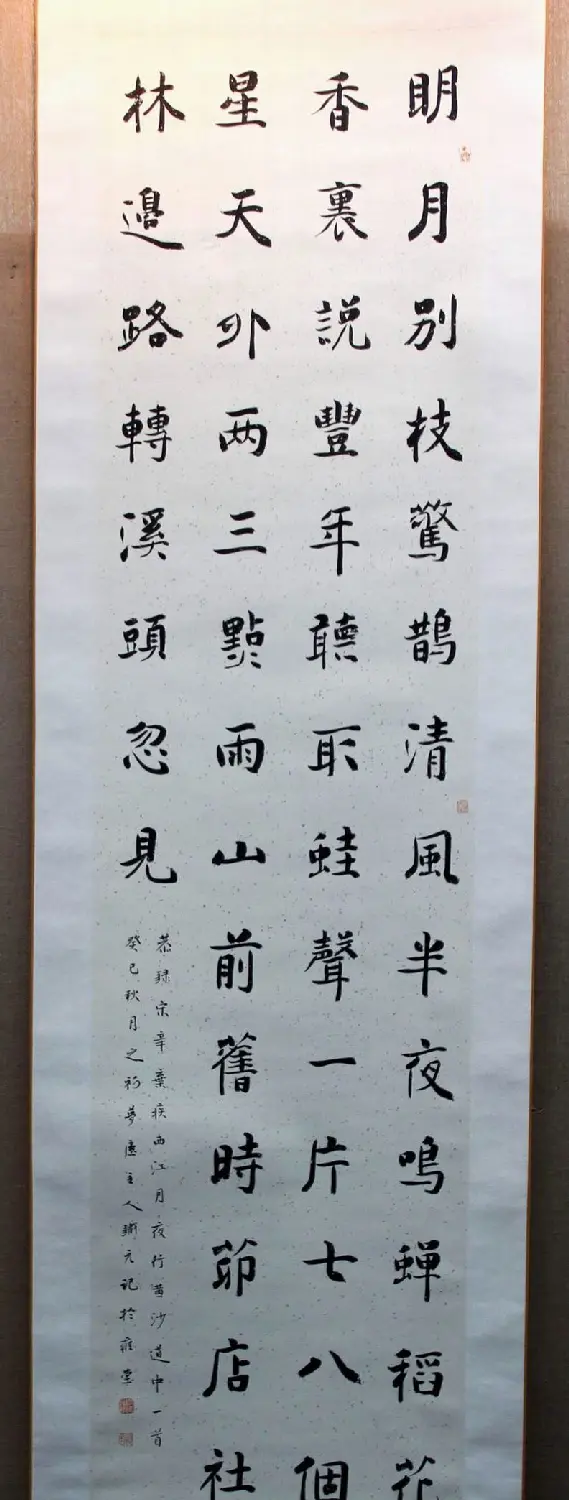 明月别枝驚鵲清風半夜鳴蝉稻花
香裏説豐年聽取蛙聲一片七八個
星天外两三點雨山前舊時茆店社
林邊路轉溪頭忽見
恭録宋辛棄疾西江月夜行黄沙道中一首
癸巳秋月之初夢 主人 元記於 堂